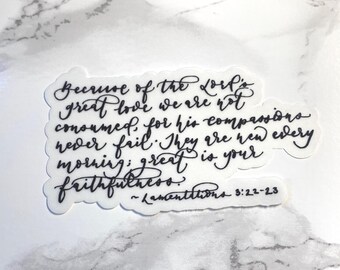 Because of the Lord's
great love we are not
consumed, for his compassions
never fail. They are new every
morning; great is your
faithfulness.
~ Lamentations 3:22-23